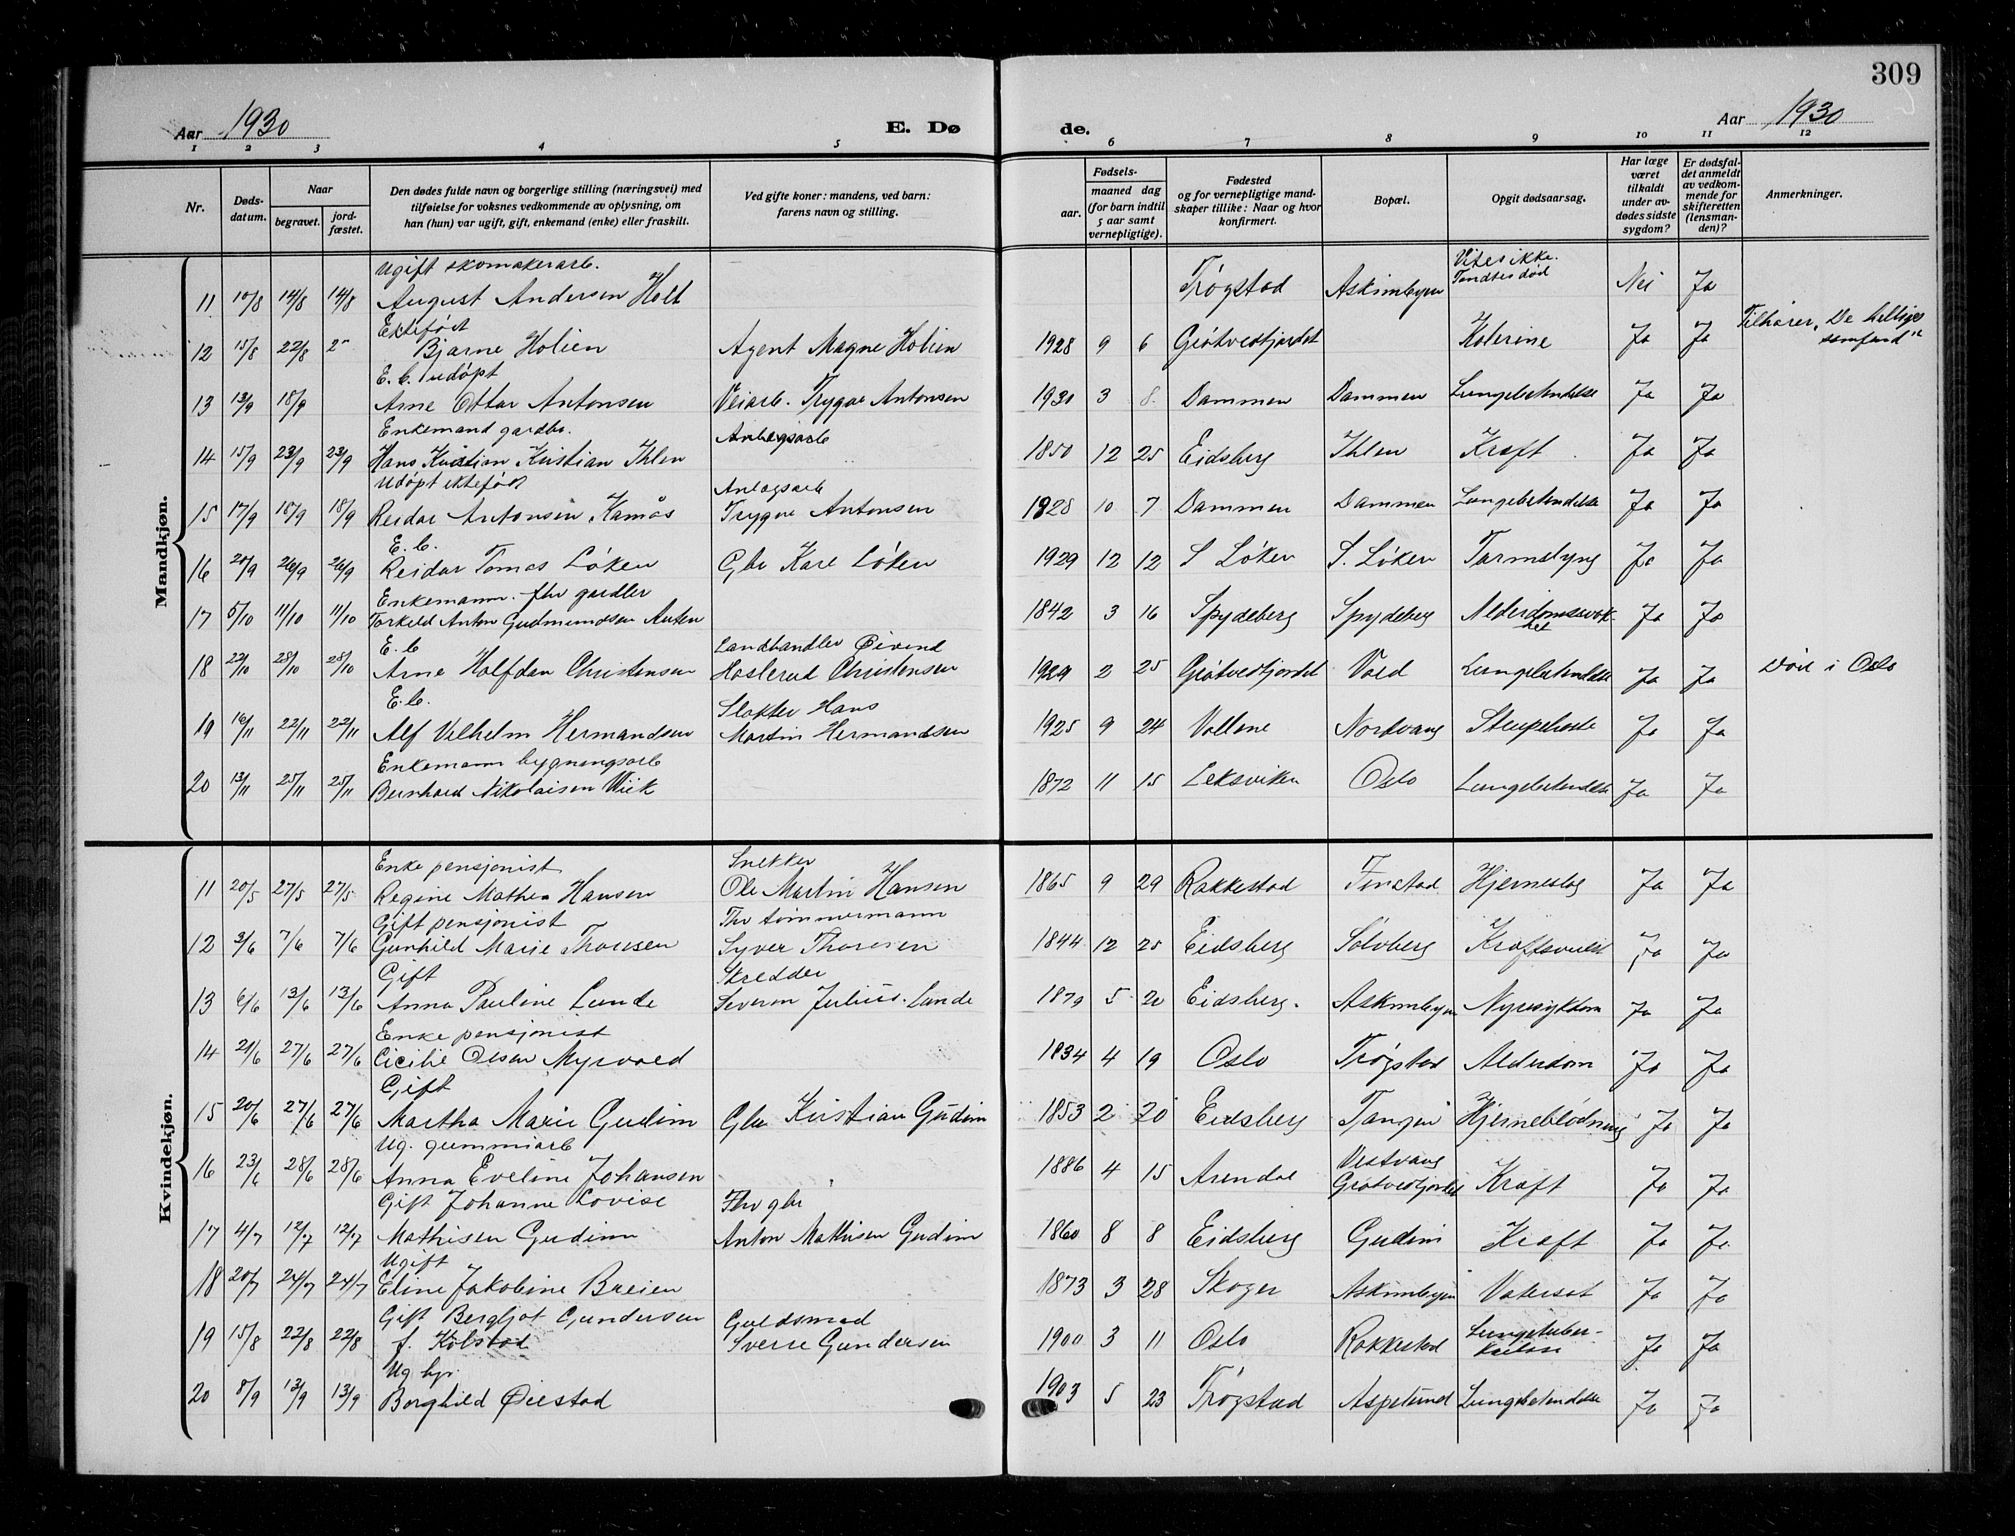 309
Aar 1930 E. Dø de. Aar 1930
1 2 3 4 5 6 7 8 9 10 11 12
Nr.
Døds-
datum.
Naar
begravet.
jord-
fæstet.
Den dødes fulde navn og borgerlige stilling (næringsvei) med
tilføielse for voksnes vedkommende av oplysning, om
han (hun) var ugift, gift, enkemand (enke) eller fraskilt.
Ved gifte koner: mandens, ved barn:
farens navn og stilling.
Fødsels-
aar.
maaned dag
(for barn indtil
5 aar samt
vernepligtige).
Fødested
og for vernepligtige mand-
skaper tillike: Naar og hvor
konfirmert.
Bopæl.
Opgit dødsaarsag.
Har læge
været
tilkaldt
under av-
dødes sidste
sygdom?
Er dødsfal-
det anmeldt
av vedkom-
mende for
skifteretten
(lensman-
den)?
Anmerkninger.
Mandkjøn.
Ugift skomakerarb. Vites ikke.
11 10/8 14/8 14/8 August Andersen Holt Trøgstad Askimbyen Fandtes død Nei Ja
Ektefødt
12 15/8 22/8 2- Bjarne Holien Agent Magne Holien 1928 9 6 Grøtvedtjordet Kolerine Ja Ja Tilhører "De helliges
samfund"
E. b. udøpt
13 13/9 18/9 Arne Ottar Antonsen Veiarb. Trygve Antonsen 1930 3 8. Dammen Dammen Lungebetendelse Ja Ja
Enkemand gardbr. Anlegsarb
14 15/9 23/9 23/9 Hans Kristian Kristian Ihlen 1850 12 25 Eidsberg Ihlen Kræft Ja Ja
Udøpt ektefød Anlegsarb
15 17/9 18/9 18/9 Reidar Antonsen Kamås Trygve Antonsen 1928 10 7 Dammen Dammen Lungebetendelse Ja Ja
E. b.
16 20/9 26/9 26/9 Reidar Tomas Løken Gbr Kare Løken 1929 12 12 S Løken S. Løken Tarmslyng Ja Ja
Enkemann. fhv gardbr
17 5/10 11/10 11/10 Torkeld Anton Gudmundsen Auten 1842 3 16 Spydeberg Spydeberg Alderdomssvak-
het Ja Ja
E. b Landhandler Øivind
18 22/10 28/10 28/10 Arne Halfdan Christensen Haslerud Christensen 1929 2 25 Grøtvedtjordet Vold Lungebetendelse Ja Ja Død i Oslo
E. b. Slakter Hans
19 16/11 22/11 22/11 Alf Vilhelm Hermandsen Martin Hermandsen 1925 9 24 Vollene Nordvang Strupehoste Ja Ja
Enkemann bygningsarb
20 13/11 25/11 25/11 Bernhard Nikolaisen Wiik 1872 11 15 Leksviken Oslo Lungebetendelse Ja Ja
Kvindekjøn.
Enke pensjonist Snekker
11 20/5 27/5 27/5 Regine Mathea Hansen Ole Martin Hansen 1865 9 29 Rakkestad Finstad Hjerneslag Ja Ja
Gift pensjonist Fhv tømmermann
12 3/6 7/6 7/6 Gunhild Marie Thoresen Syver Thoresen 1844 12 25 Eidsberg Solvberg Kræftsvulst Ja Ja
Gift Skredder
13 6/6 13/6 13/6 Anna Pauline Lunde Severin Julius Lunde 1879 5 20 Eidsberg. Askimbyen Nyresykdom Ja Ja
Enke pensjonist
14 21/6 27/6 27/6 Cicilie Olsen Myrvold 1834 4 19 Oslo Trøgstad Alderdom Ja Ja
Gift
15 20/6 27/6 27/6 Martha Marie Gudim Gbr Kristian Gudim 1853 2 20 Eidsberg Tangen Hjerneblødning Ja Ja
Ug. gummiarb Vestvang
16 23/6 28/6 28/6 Anna Eveline Johansen 1886 4 15 Arendal Grøtvedtjordet Kræft Ja Ja
Gift Johanne Lovise Fhv gbr
17 4/7 12/7 12/7 Mathisen Gudim Anton Mathisen Gudim 1860 8 8 Eidsberg Gudim Kræft Ja Ja
Ugift
18 20/7 24/7 24/7 Eline Jakobine Breien 1873 3 28 Skoger Askimbyen Vatersot Ja Ja
Gift Bergljot Gundersen Guldsmed
19 15/8 22/8 22/8 f. Kolstad Sverre Gundersen 1900 3 11 Oslo Rakkestad Lungetuber-
kulose Ja Ja
Ug hp.
20 8/9 13/9 13/9 Borghild Øiestad 1903 5 23 Trøgstad Aspelund Lungebetendelse Ja Ja